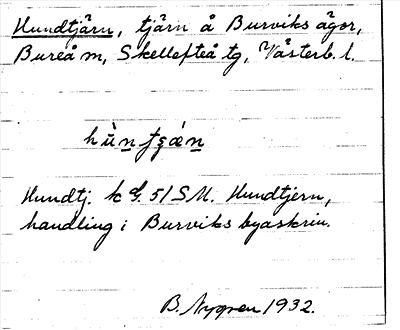 Hundtjärn, tjärn å Burviks ägor,
Bureå m, Skellefteå tg, Västerb. l.
hùnʃʂǽn
Hundtj. k G. 51 S.M. Hundtjern,
handling i Burviks byaskrin.
B. Nygren 1932.